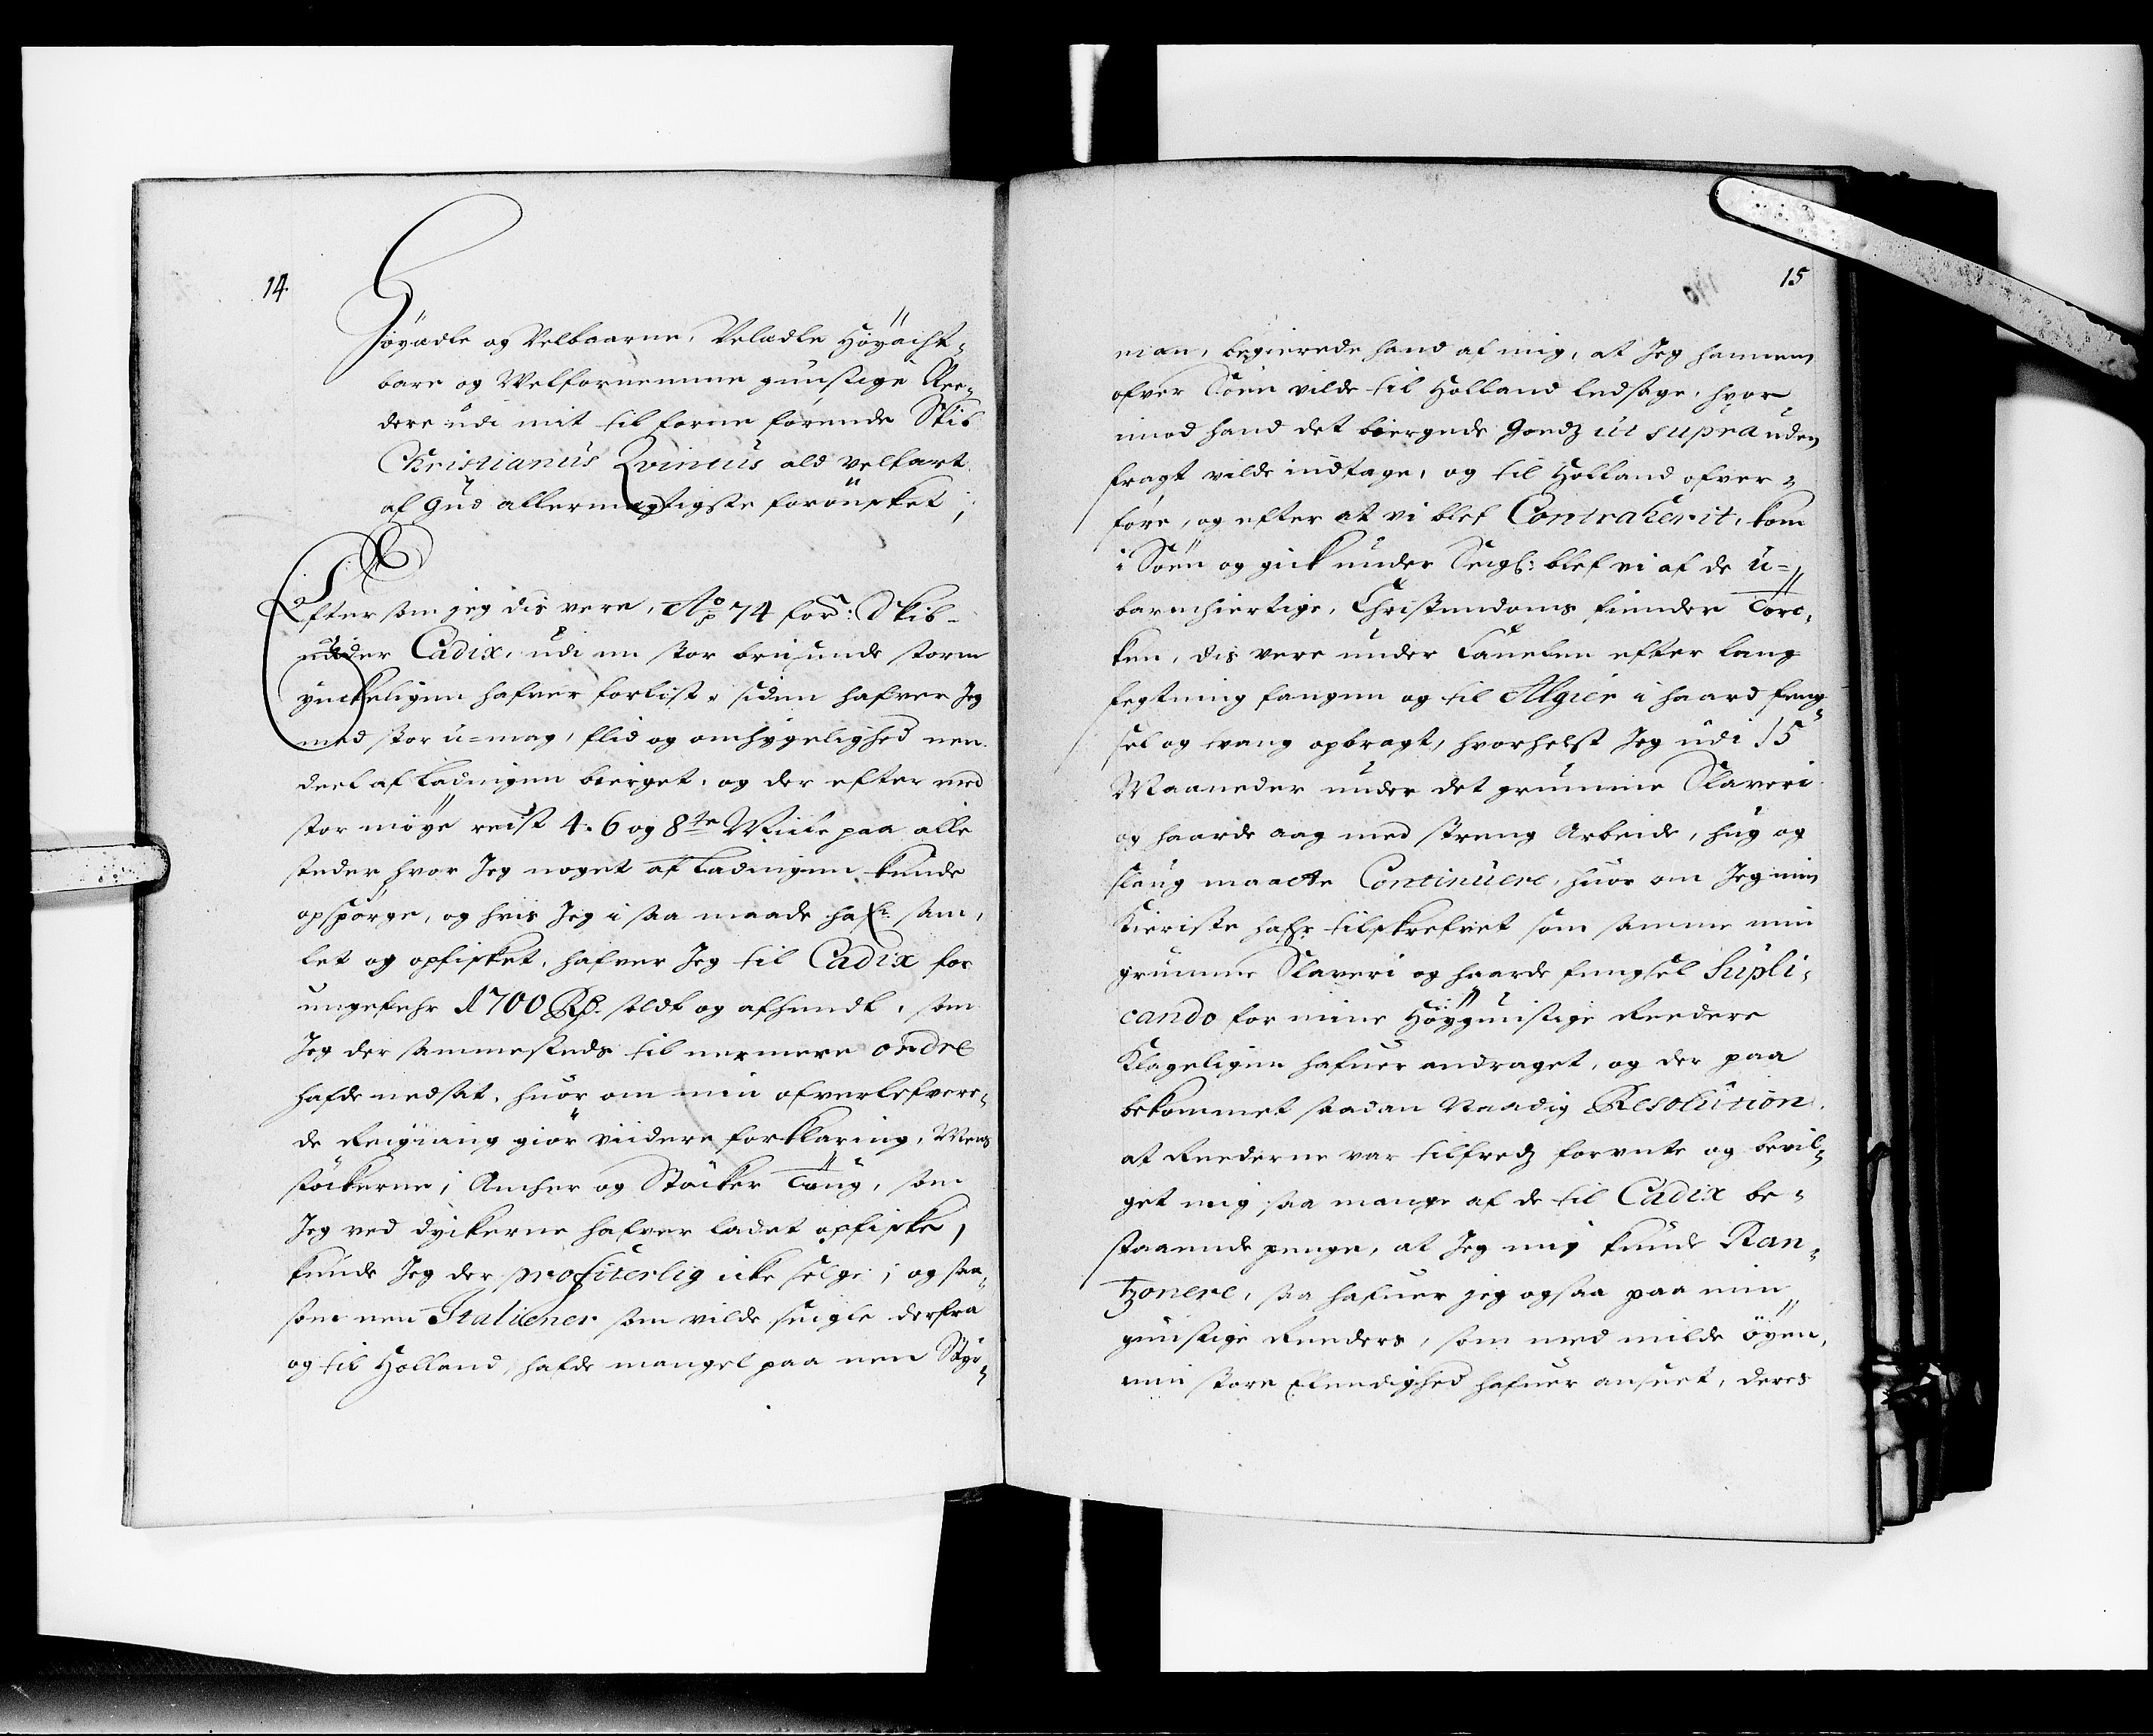 14.
Höyædle og Velbaarne, Velædle Höyacht-
bare og Welfornemme gunstige Ree-
dere udi mit til forne förende Skib
Christianus Qvintus ald velfart
af Gud allermegtigste forönsket;
Eftersom jeg dis vere, Ao 74 ford: Skib
under Cadix, udi en stor brusende storm
ynckeligen hafver forlist, siden hafver Jeg
med stor u-mag, flid og omhygelighed een
deel af Ladningen bierget, og der efter med
stor möye reist 4. 6 og 8te Miile paa alle
steder, hvor Jeg noget af Ladningen kunde
opspörge, og hvis Jeg i saa maade hafr. sam-
let og opfisket, hafver Jeg til Cadix for
ungefehr 1700 Rd. soldt og afhendt, som
Jeg der sammesteds til nermere ordre
hafde nedsat, huor om min ofverlefvere-
de Reigning giör viidere forklaring, Mens
stöckerne, Ancher og Stöcker Toug, som
Jeg ved dyckerne hafver ladet opfiske,
kunde Jeg der profiterlig icke selge; og saa-
som een Italiener som vilde seigle derfra
og til Holland, hafde mangel paa een Styr-
15
man, begierede hand af mig, at Jeg hannem
ofver Söen vilde til Holland ledsage, hvor
imod hand det biergede Goedz ut supra uden
fragt vilde indtage, og til Holland ofver-
före, og efter at vi blef Contraherit, kom
i Söen og gick under Seigl: blef vi af de u-
barmhiertige, Christendoms fiender Törc-
ken, dis vere under Canelen efter lang
fegtning fangen og til Algier i haard feng-
sel og trang opbragt, hvorhelst Jeg udi 15
Maaneder under det grumme Slaveri
og haarde aag med streng Arbeide, hug og
slaug maatte Continuere, huor om Jeg min
Kieriste hafr tilskrefvet som samme min
grumme Slaveri og haarde fengsel Supli-
cando for mine Höygunstige Reedere
Klageligen hafuer andraget, og der paa
bekommet saadan Naadig Resolution,
at Reederne var tilfredz forente og bevil-
get mig saa mange af de til Cadix be-
staaende penge, at Jeg mig kunde Ran-
tzonere, saa hafuer jeg ogsaa paa min
gunstige Reeders, som med milde öyen,
min store Elendighed hafuer anseet, deres